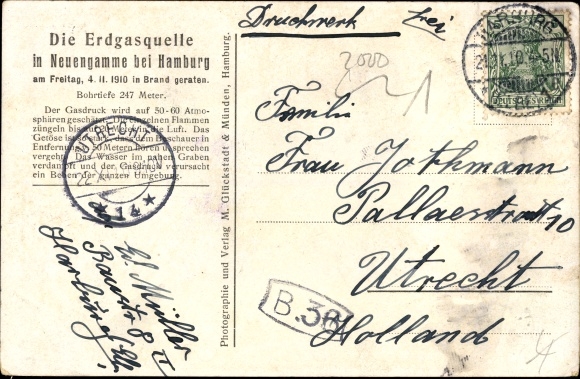 Die Erdgasquelle
in Neuengamme bei Hamburg
am Freitag, 4. 11. 1910 in Brand geraten.
Bohrtiefe 247 Meter.
Der Gasdruck wird auf 50-60 Atmo-
sphären geschätzt. Die einzelnen Flammen
züngeln bis auf in die Luft. Das
Getöse ist so stark, dass dem Beschauer in
Entfernung 50 Metern Hören und Sprechen
vergeht. Das Wasser im nahen Graben
verdampft und der Gasdruck verursacht
ein Beben der ganzen Umgebung.
UTRECHT
14
Ed Müller
Baustr 8 II
Harburg Elbe
Photographie und Verlag M. Glückstadt & Münden, Hamburg.
Druckwerk frei
HARBURG
DEUTSCHES REICH
3000
1
Familie
Frau Jothmann
Pallaestraat 10
Utrecht
Holland
B.36